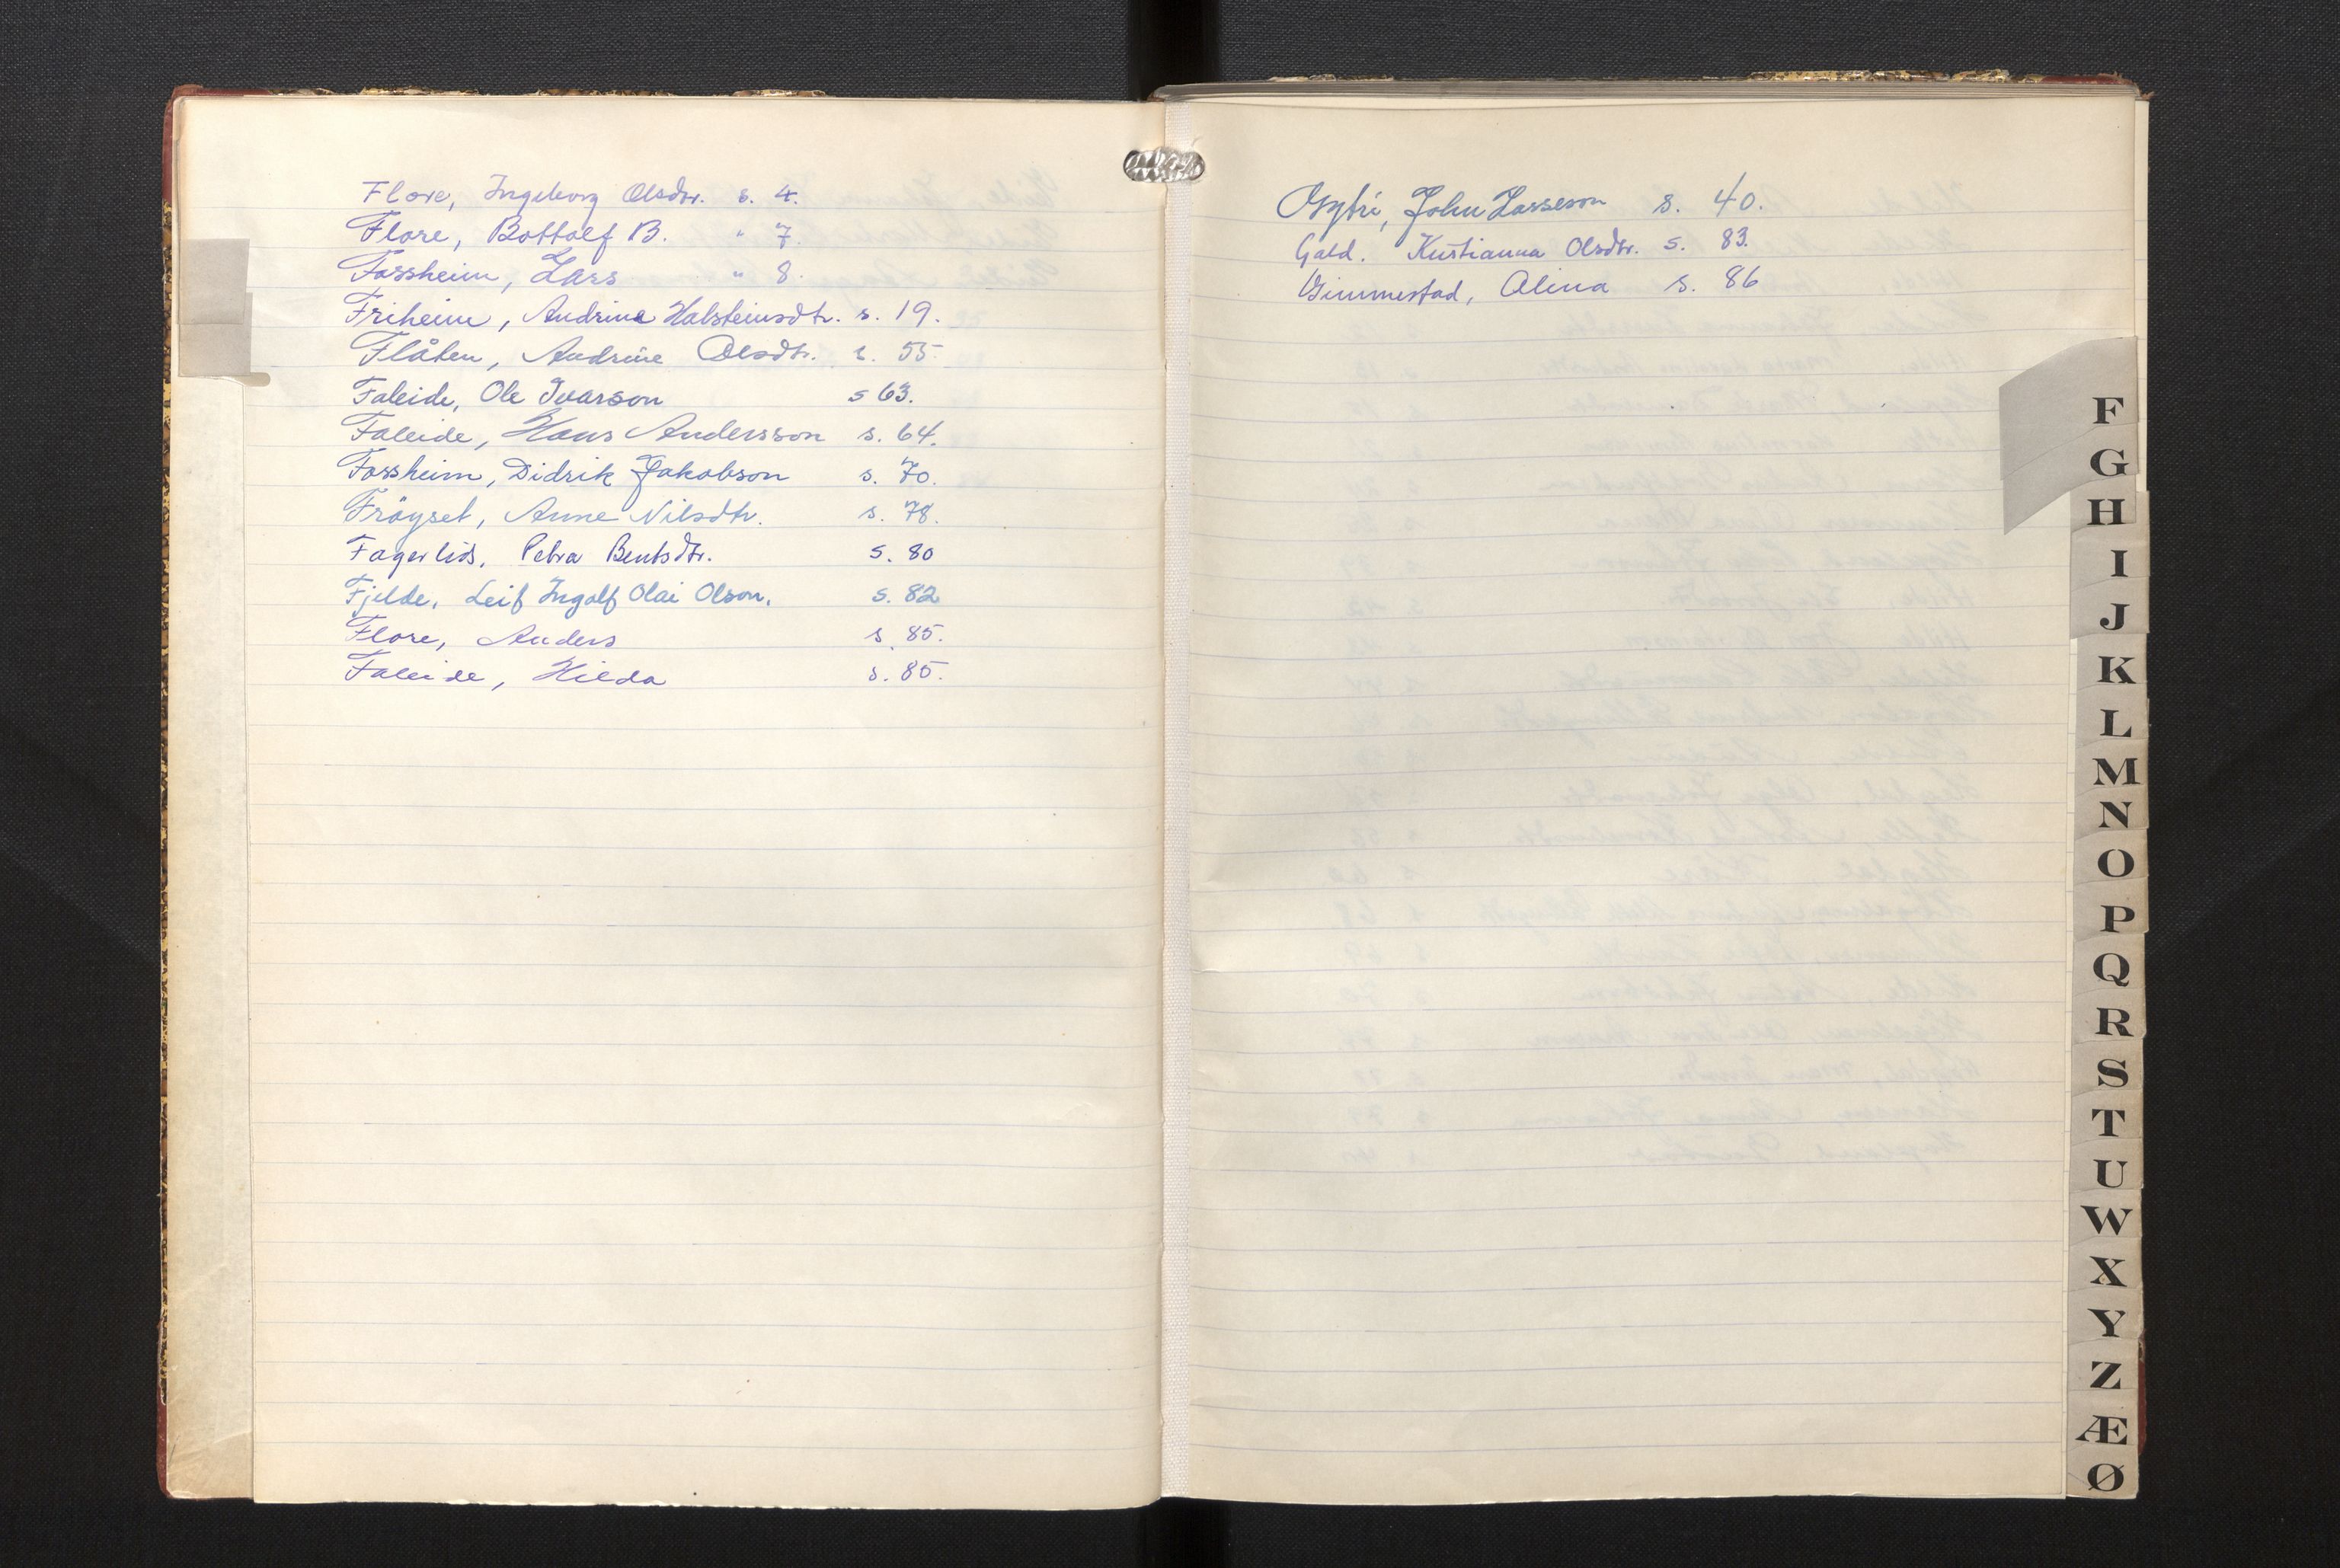 Flore, Ingeborg Olsdtr. s. 4.
Flore, Bottolf B. " 7.
Fossheim, Lars " 8.
Friheim, Andrine Halsteinsdtr. s. 19.
Flåten, Andrine Olsdtr. s. 55.
Faleide, Ole Ivarson s 63.
Faleide, Hans Andersson s. 64.
Fossheim, Didrik Jakobson s. 70.
Fröyset, Anne Nilsdtr. s. 78.
Fagerlid, Petra Bentsdtr. s. 80
Fjelde, Leif Ingolf Olai Olson. s. 82
Flore, Anders s. 85.
Faleide, Hilda s. 85.
John Larsseson s. 40.
Gald. Kristianna Olsdtr. s. 83.
Gimmestad, Alina s. 86
F
G
H
I
J
K
L
M
N
O
P
Q
R
S
T
U
W
X
Y
Z
Æ
Ø